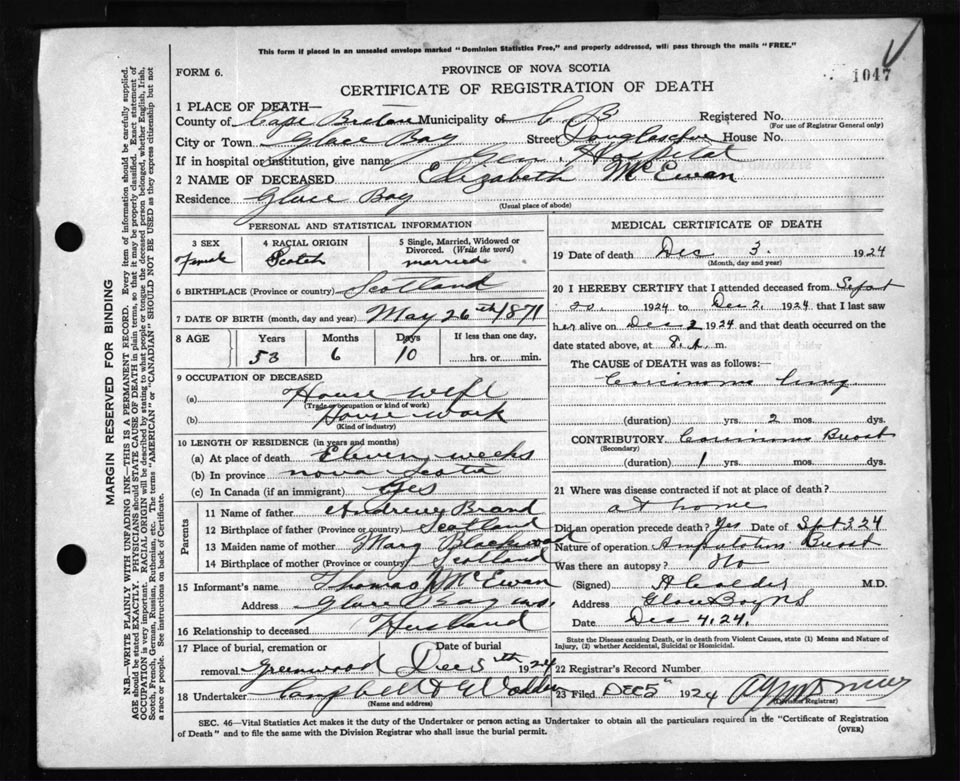 This form if placed in an unsealed envelope marked "Dominion Statistics Free," and properly addressed, will pass through the mails "FREE."
1047
FORM 6.
PROVINCE OF NOVA SCOTIA
CERTIFICATE OF REGISTRATION OF DEATH
1 PLACE OF DEATH—
County of Cape Breton Municipality of C B Registered No.
(For use of Registrar General only)
City or Town Glace Bay Street House No.
If in hospital or institution, give name Gen. Hospital
2 NAME OF DECEASED Elizabeth McEwan
Residence Glace Bay
(Usual place of abode)
PERSONAL AND STATISTICAL INFORMATION
3 SEX
Female
4 RACIAL ORIGIN
Scotch
5 Single, Married, Widowed or Divorced. (Write the word)
married
6 BIRTHPLACE (Province or country) Scotland
7 DATE OF BIRTH (month, day and year) May 26th 1871
8 AGE
Years Months Days If less than one day,
53 6 10 hrs. or min.
9 OCCUPATION OF DECEASED
(a) House wife
(Trade or occupation or kind of work)
(b) House work
(Kind of industry)
10 LENGTH OF RESIDENCE (in years and months)
(a) At place of death Eleven weeks
(b) In province nova Scotia
(c) In Canada (if an immigrant) yes
Parents
11 Name of father Andrew Brand
12 Birthplace of father (Province or country) Scotland
13 Maiden name of mother Mary Blackwood
14 Birthplace of mother (Province or country) Scotland
15 Informant's name Thomas McEwan
Address Glace Bay
16 Relationship to deceased Husband
17 Place of burial, cremation or removal Greenwood Date of burial Dec 5th 1924
18 Undertaker Campbell &
(Name and address)
MEDICAL CERTIFICATE OF DEATH
19 Date of death Dec 3. 1924
(Month, day and year)
20 I HEREBY CERTIFY that I attended deceased from Sept
20 1924 to Dec 2, 1924 that I last saw
her alive on Dec 2 1924 and that death occurred on the
date stated above, at 8 A. m.
The CAUSE OF DEATH was as follows:—
Carcinoma lung
(duration) yrs. 2 mos. dys.
CONTRIBUTORY Carcinoma Breast
(Secondary)
(duration) 1 yrs. mos. dys.
21 Where was disease contracted if not at place of death?
at home
Did an operation precede death? Yes Date of Sept 3 24
Nature of operation Amputation Breast
Was there an autopsy? No
(Signed) M.D.
Address Glace Bay NS
Date Dec 4. 24.
State the Disease causing Death, or in death from Violent Causes, state (1) Means and Nature of Injury, (2) whether Accidental, Suicidal or Homicidal.
22 Registrar's Record Number
23 Filed DEC 5" 1924
(Division Registrar)
SEC. 46—Vital Statistics Act makes it the duty of the Undertaker or person acting as Undertaker to obtain all the particulars required in the "Certificate of Registration
of Death" and to file the same with the Division Registrar who shall issue the burial permit. (OVER)
MARGIN RESERVED FOR BINDING
N.B.—WRITE PLAINLY WITH UNFADING INK—THIS IS A PERMANENT RECORD. Every item of information should be carefully supplied.
AGE should be stated EXACTLY. PHYSICIANS should STATE CAUSE OF DEATH in plain terms, so that it may be properly classified. Exact statement of
OCCUPATION is very important. RACIAL ORIGIN will be described by stating to what people or tongue the deceased person belonged, whether English, Irish,
Scotch, French, German, Russian, Ruthenian, etc. The terms "AMERICAN" or "CANADIAN" SHOULD NOT BE USED as they express citizenship but not
a race or people. See instructions on back of Certificate.